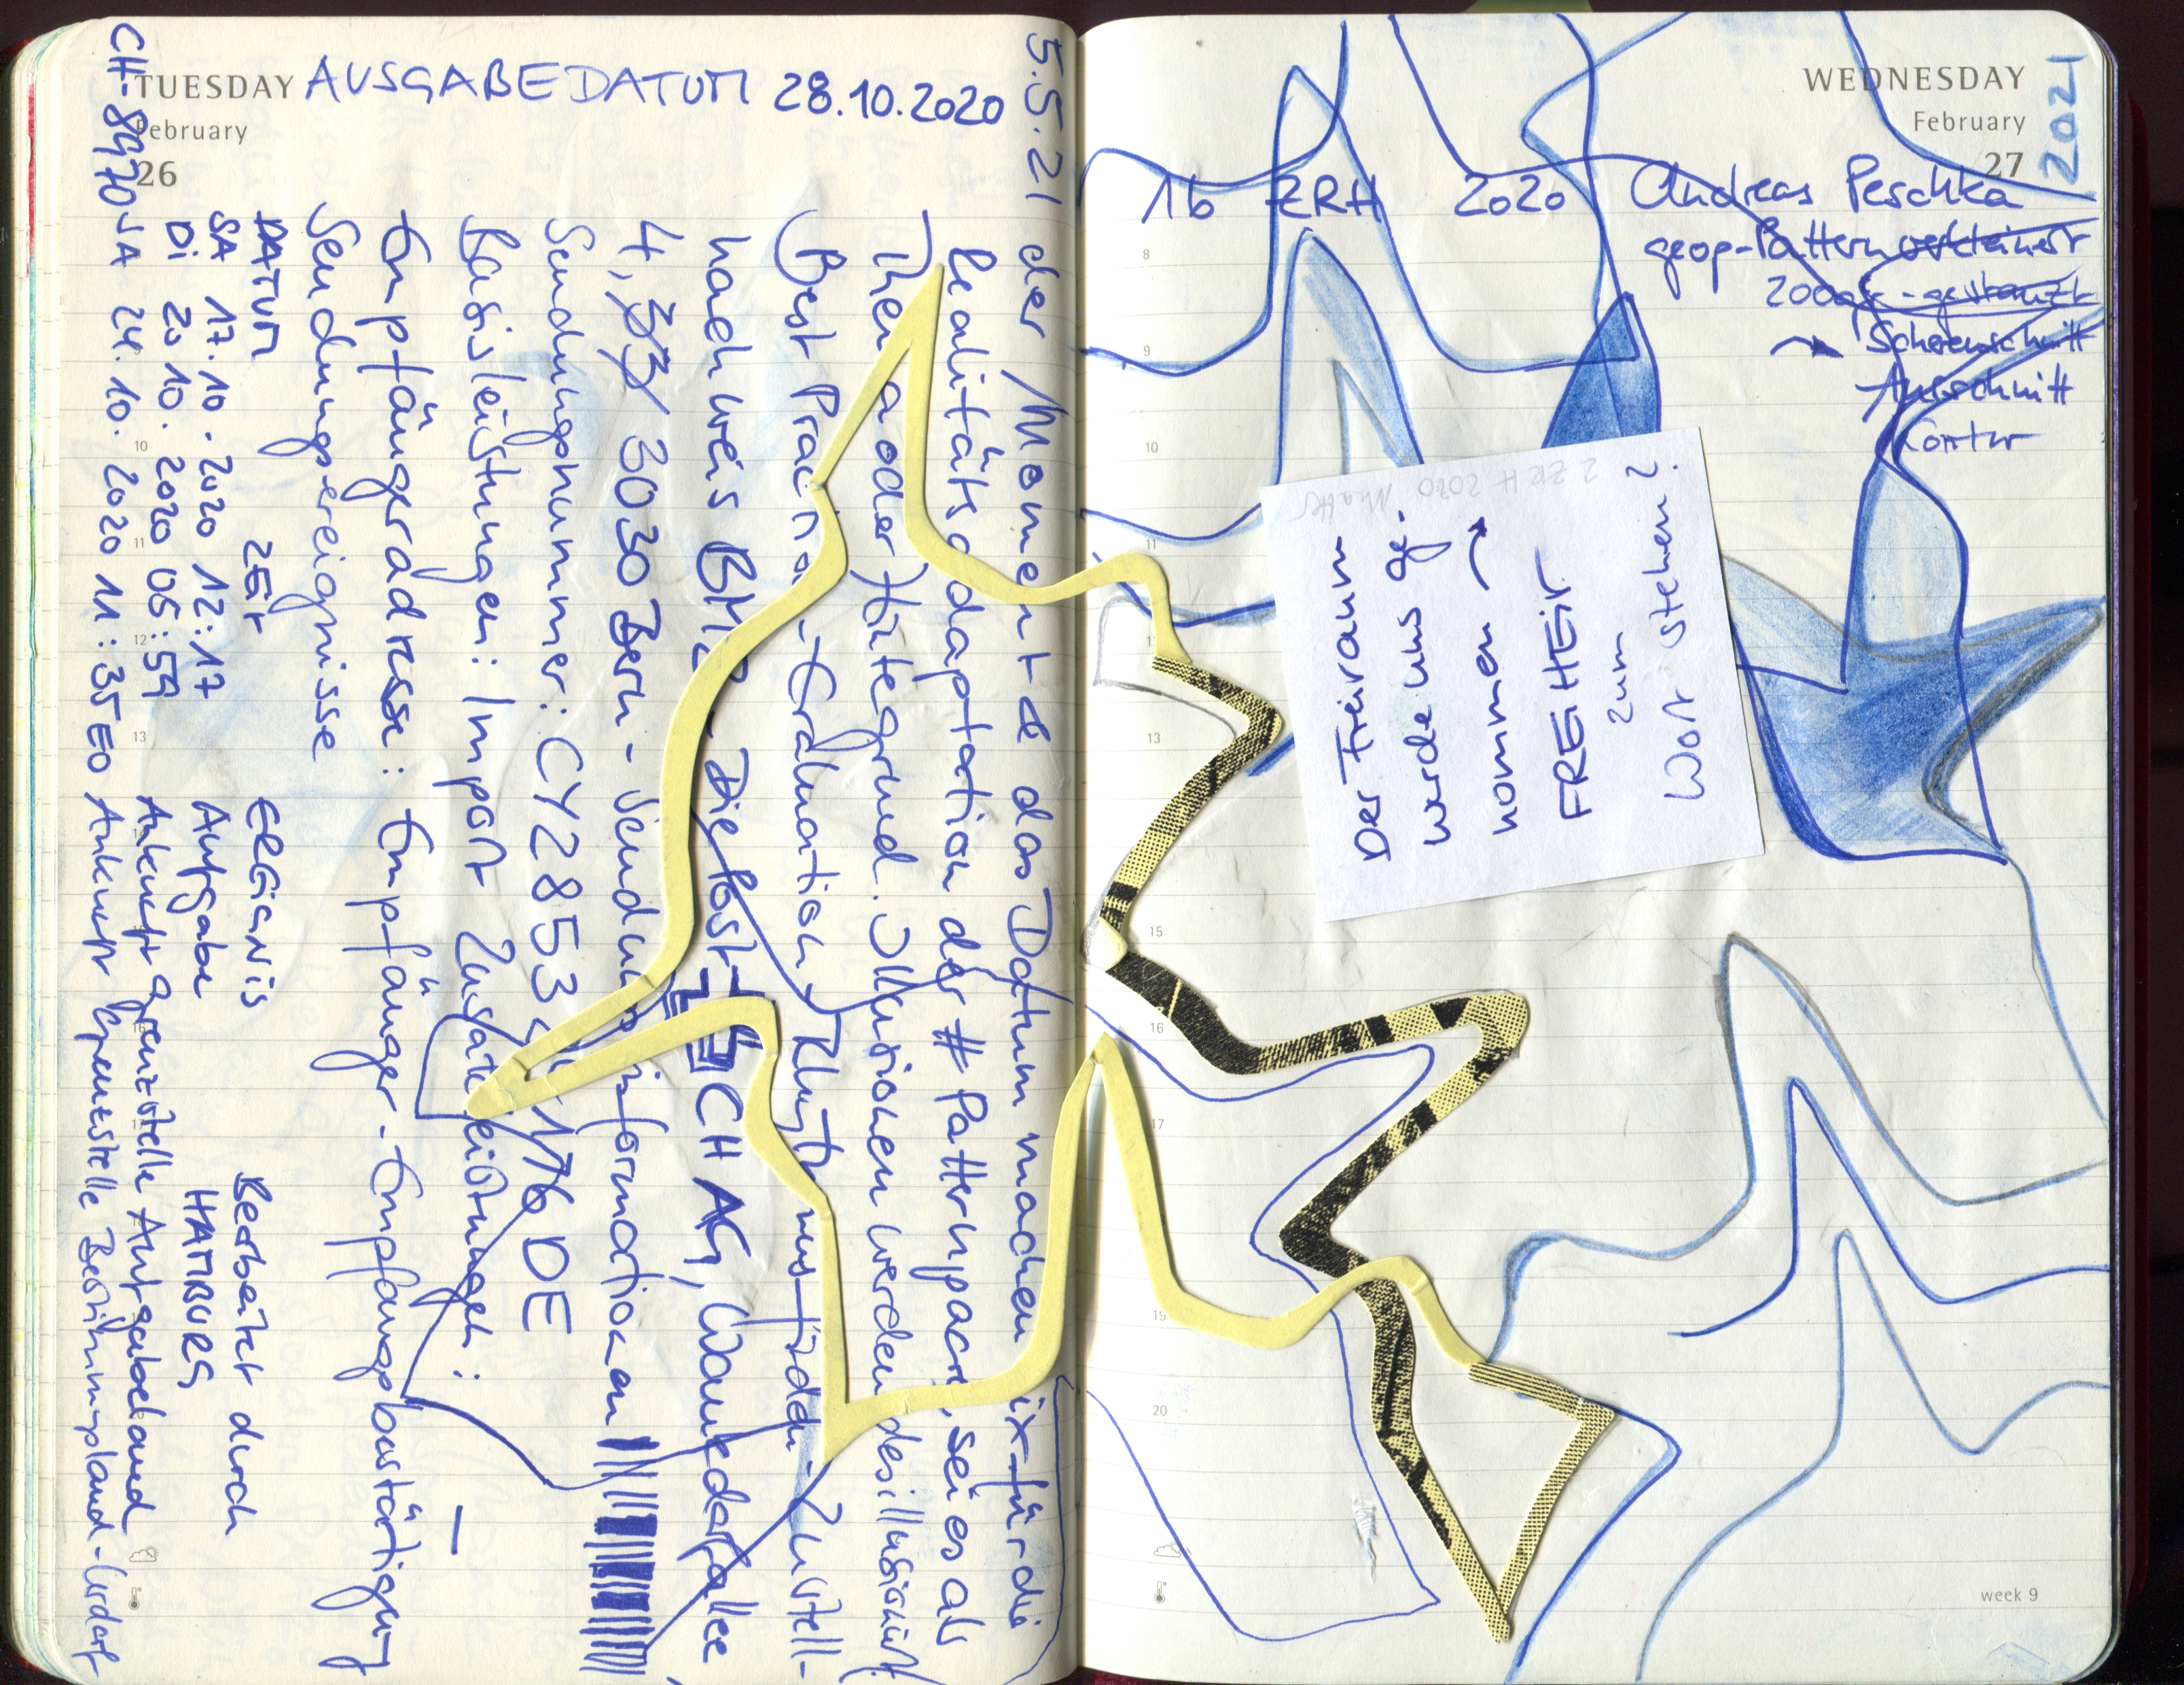 TUESDAY
February
26
AUSGABEDATUM 28.10.2020
5.5.21 der Momente das Datum machen ix für die
Realitätsadaptation der # Patternspace, sei es als
Thema oder Hintegrund. Illusionen werden desillusioniert
(Best Practice-Evaluation)
hachweis BM2 - Die Post CH AG, Wankdorfallee
4, 3030 Bern - Sendungsinformationen
Sendungsnummer: CY2853 176 DE
Basisleistungen: Import Zusatzleistungen: —
Empfängeradresse: Empfänger-Empfangsbestätigung
Sendungsereignisse
DATUM ZEIT EREIGNIS Bearbeitet durch
SA 17.10.2020 12:17 Aufgabe HAMBURG
Di 20.10.2020 05:59 Ankunft Grenzstelle Aufgabeland
SA 24.10.2020 11:35 Ankunft Grenzstelle Bestimmungsland - Urdorf
CH-8970
WEDNESDAY
February
27
2021
16 ZRH 2020 Andreas Peschka
geop-Pattern verkleinert
200 - gestanzt
Scherenschnitt
Ausschnitt
Kontur
2 ZRH 2020
Der Freiraum
werde uns ge-
nommen →
FREIHEIT
zum
Wort stehen?
8
9
10
11
12
13
15
16
17
19
20
10
11
12
13
16
week 9